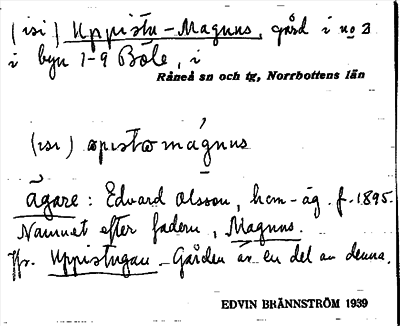 (isi) Uppistu-Magnus, gård i no 3
i byn 1-9 Böle, i
Råneå sn och tg, Norrbottens län
(isi) opistω mágnus
ägare: Edvard Olsson, hem-äg. f. 1895.
Namnet efter fadern, Magnus.
Jfr. Uppistugan - Gården är en del av denna.
EDVIN BRÄNNSTRÖM 1939